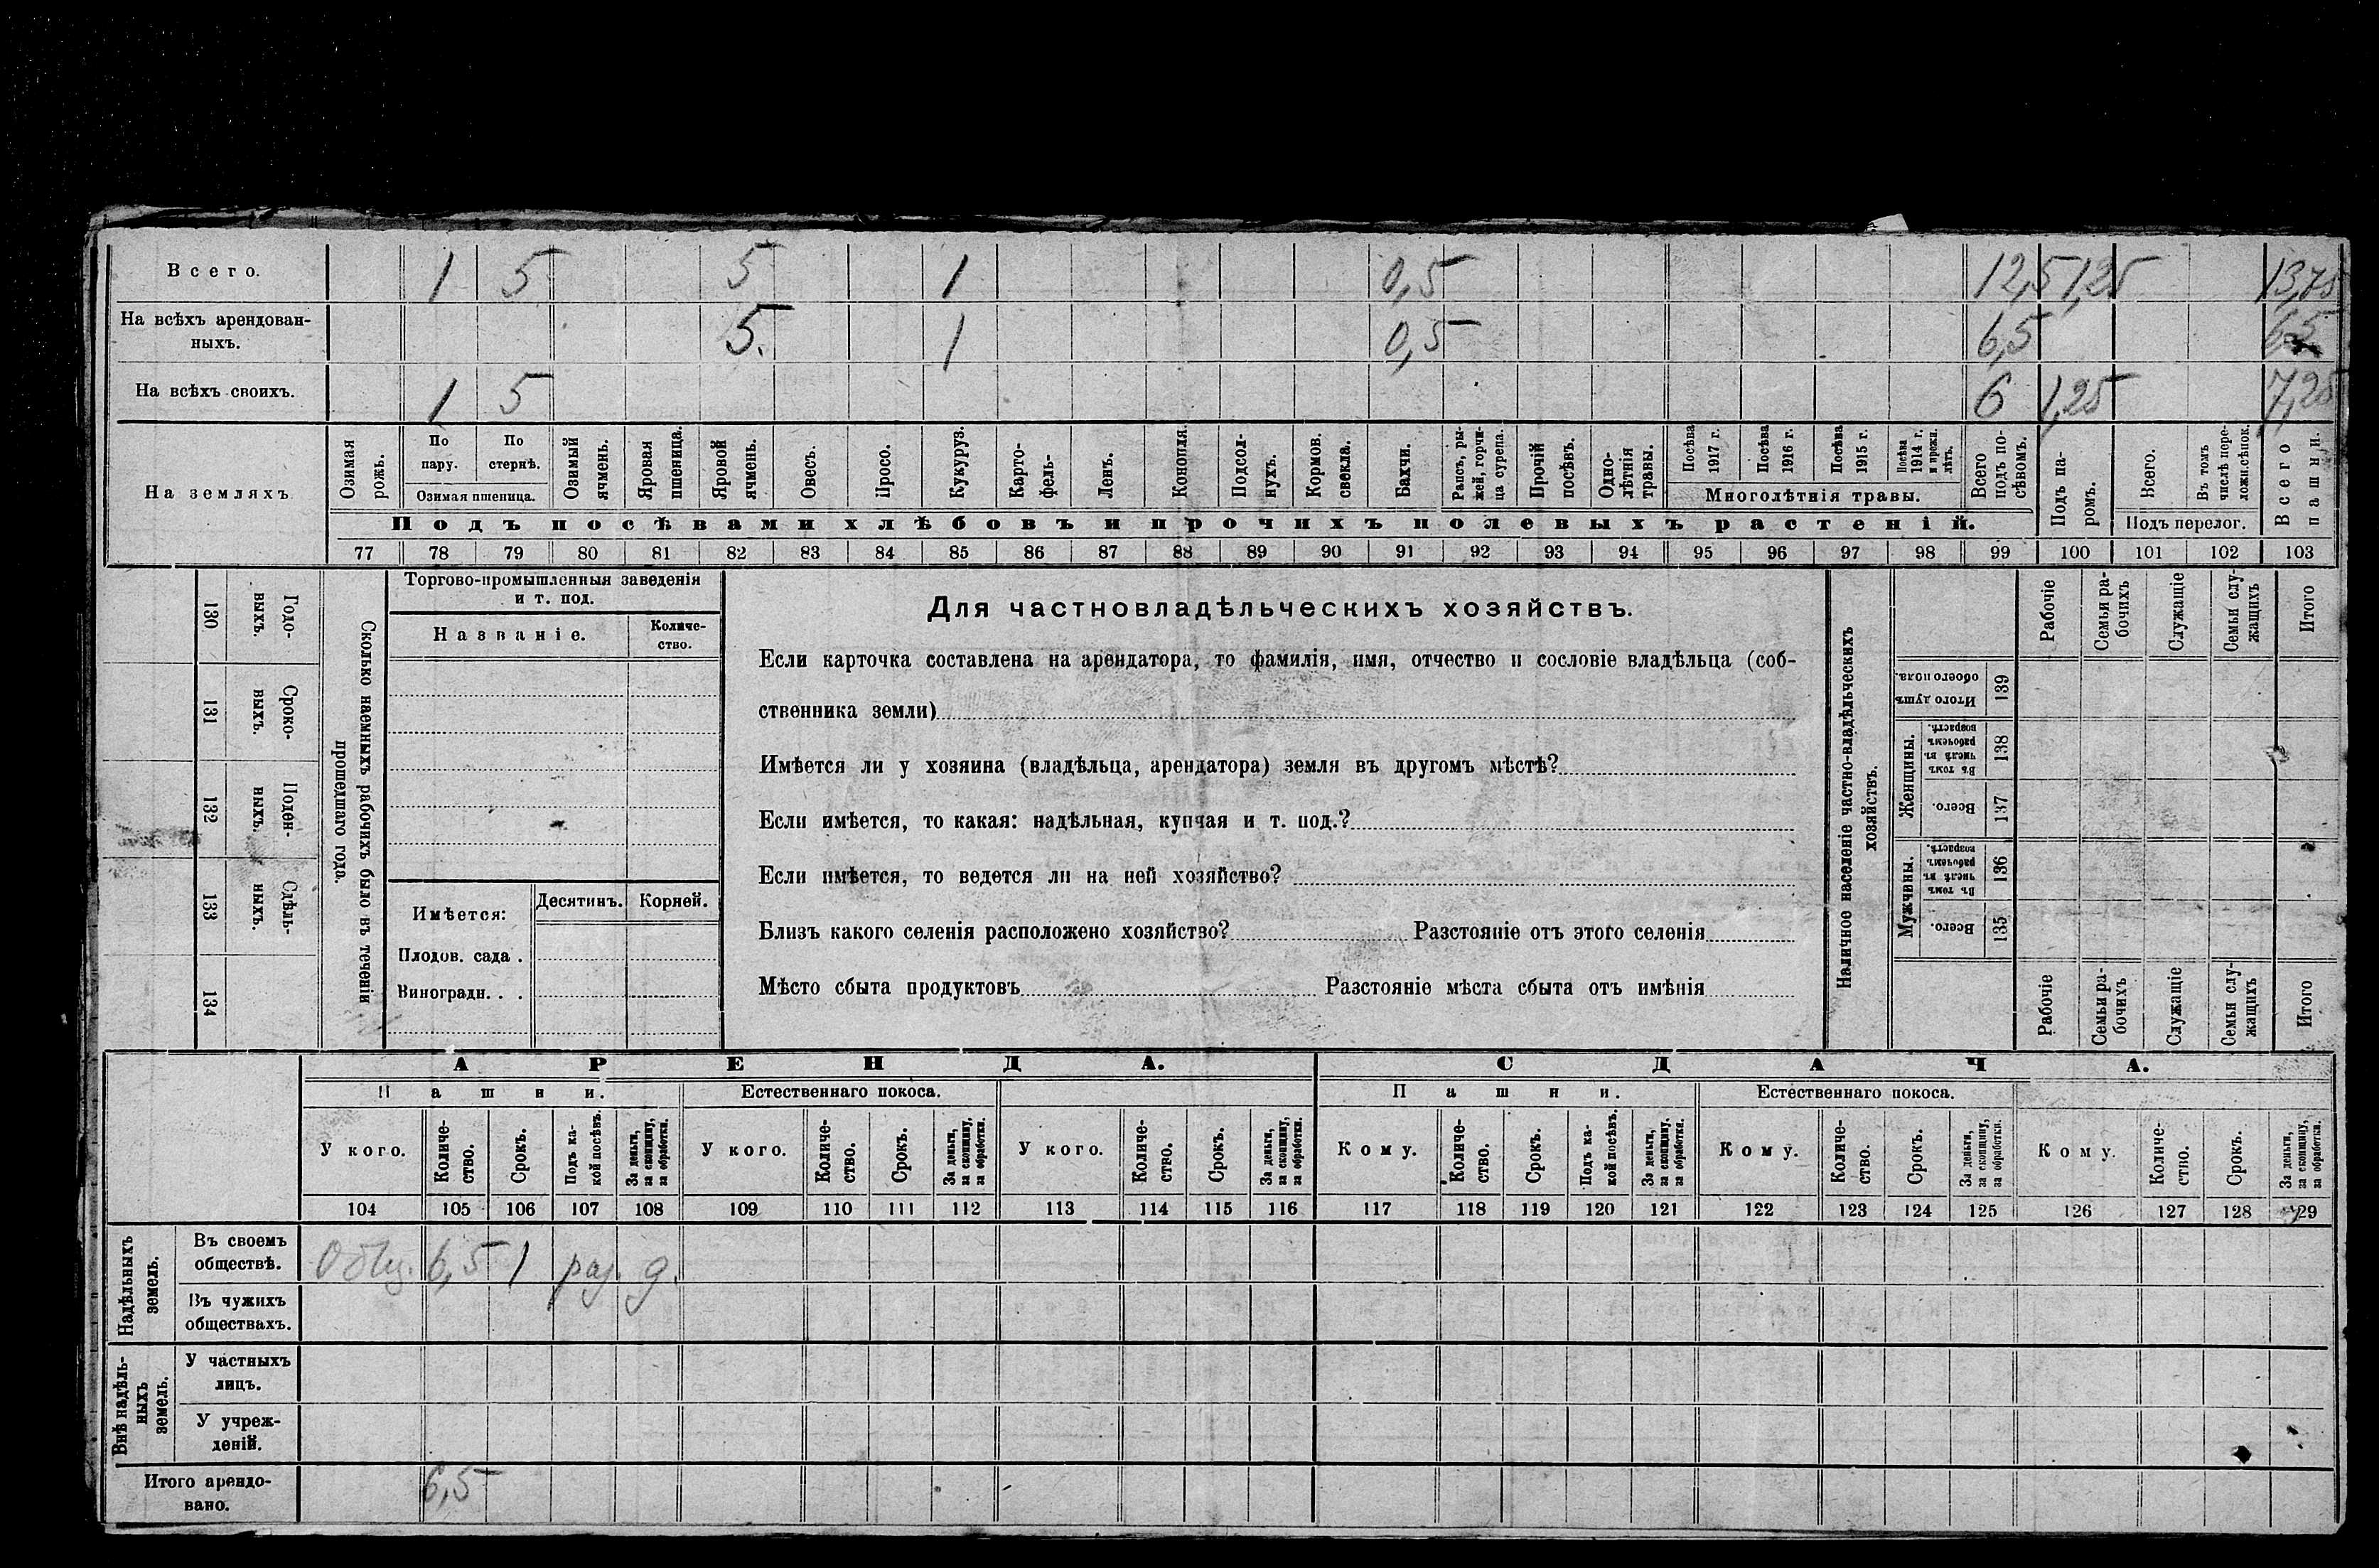 Всего. 1 5 5 1 0,5 12,5 1,25 13,75
На всѣхъ арендован-
ныхъ. 5. 1 0,5 6,5 6,5
На всѣхъ своихъ. 1 5 6 1,25 7,25
На земляхъ
Озимая рожь.
По пару.
По стернѣ.
Озимая пшеница.
Озимый ячмень.
Яровая пшеница.
Яровой ячмень.
Овесъ.
Просо.
Кукуруз.
Карто-
фель-
Ленъ.
Конопля.
Подсол-
нухъ.
Кормов. свекла.
Бахчи.
Рапсъ, ры-
жей, горчи-
ца сурепа.
Прочій посѣвъ.
Одно-
лѣтнія
травы.
Посѣва 1917 г.
Посѣва 1916 г.
Посѣва 1915 г.
Посѣва 1914 г. и прежн. лѣтъ.
Многолѣтнія травы.
Всего подъ по-
сѣвомъ.
Подъ посѣвами хлѣбовъ и прочихъ полевыхъ растеній.
Подъ па-
ромъ.
Всего.
Въ томъ числѣ пере-
ложн.сѣнок.
Подъ перелог.
Всего пашни.
77 78 79 80 81 82 83 84 85 86 87 88 89 90 91 92 93 94 95 96 97 98 99 100 101 102 103
Годо-
выхъ.
130
Сроко-
выхъ.
131
Поден-
ныхъ.
132
Сдѣль-
ныхъ.
133
134
Сколько наемныхъ рабочихъ было въ теченіи
прошедшаго года.
Торгово-промышленныя заведенія
и т. под.
Названіе.
Количе-
ство.
Имѣется:
Десятинъ.
Корней.
Плодов. сада .
Виноградн. . .
Для частновладѣльческихъ хозяйствъ.
Если карточка составлена на арендатора, то фамилія, имя, отчество и сословіе владѣльца (соб-
ственника земли)
Имѣется ли у хозяина (владѣльца, арендатора) земля въ другомъ мѣстѣ?
Если имѣется, то какая: надѣльная, купчая и т. под.?
Если имѣется, то ведется ли на ней хозяйство?
Близъ какого селенія расположено хозяйство? Разстояніе отъ этого селенія
Мѣсто сбыта продуктовъ Разстояніе мѣста сбыта отъ имѣнія
Наличное населеніе частно-владѣльческихъ
хозяйствъ.
Рабочіе
Семьи ра-
бочихъ
Служащіе
Семьи слу-
жащихъ
Итого
Итого душъ
обоего пола.
139
Женщины.
Въ томъ
числѣ въ
рабочемъ
возрастѣ.
138
Всего.
137
Мужчины.
Въ томъ
числѣ въ
рабочемъ
возрастѣ.
136
Всего.
135
Рабочіе
Семьи ра-
бочихъ
Служащіе
Семьи слу-
жащихъ
Итого
АРЕНДА.
СДАЧА.
Пашни.
Естественнаго покоса.
Пашни.
Естественнаго покоса.
У кого.
Количе-
ство.
Срокъ.
Подъ ка-
кой посѣвъ.
За деньги,
за скопщину,
за обработки.
У кого.
Количе-
ство.
Срокъ.
За деньги,
за скопщину,
за обработки.
У кого.
Количе-
ство.
Срокъ.
За деньги,
за скопщину,
за обработки.
Кому.
Количе-
ство.
Срокъ.
Подъ ка-
кой посѣвъ.
За деньги,
за скопщину.
за обработки.
Кому.
Количе-
ство.
Срокъ.
За деньги,
за скопщину,
за обработки.
Кому.
Количе-
ство.
Срокъ.
За деньги,
за скопщину,
за обработки.
104 105 106 107 108 109 110 111 112 113 114 115 116 117 118 119 120 121 122 123 124 125 126 127 128 129
Надѣльныхъ
земель.
Въ своемъ
обществѣ.
Общ. 6,5 1 раз. д.
Въ чужихъ
обществахъ.
Внѣ надѣль-
ныхъ
земель.
У частныхъ
лицъ.
У учреж-
деній.
Итого арендо-
вано. 6,5